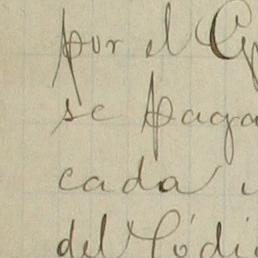 por el
se paga
cada
del Códi